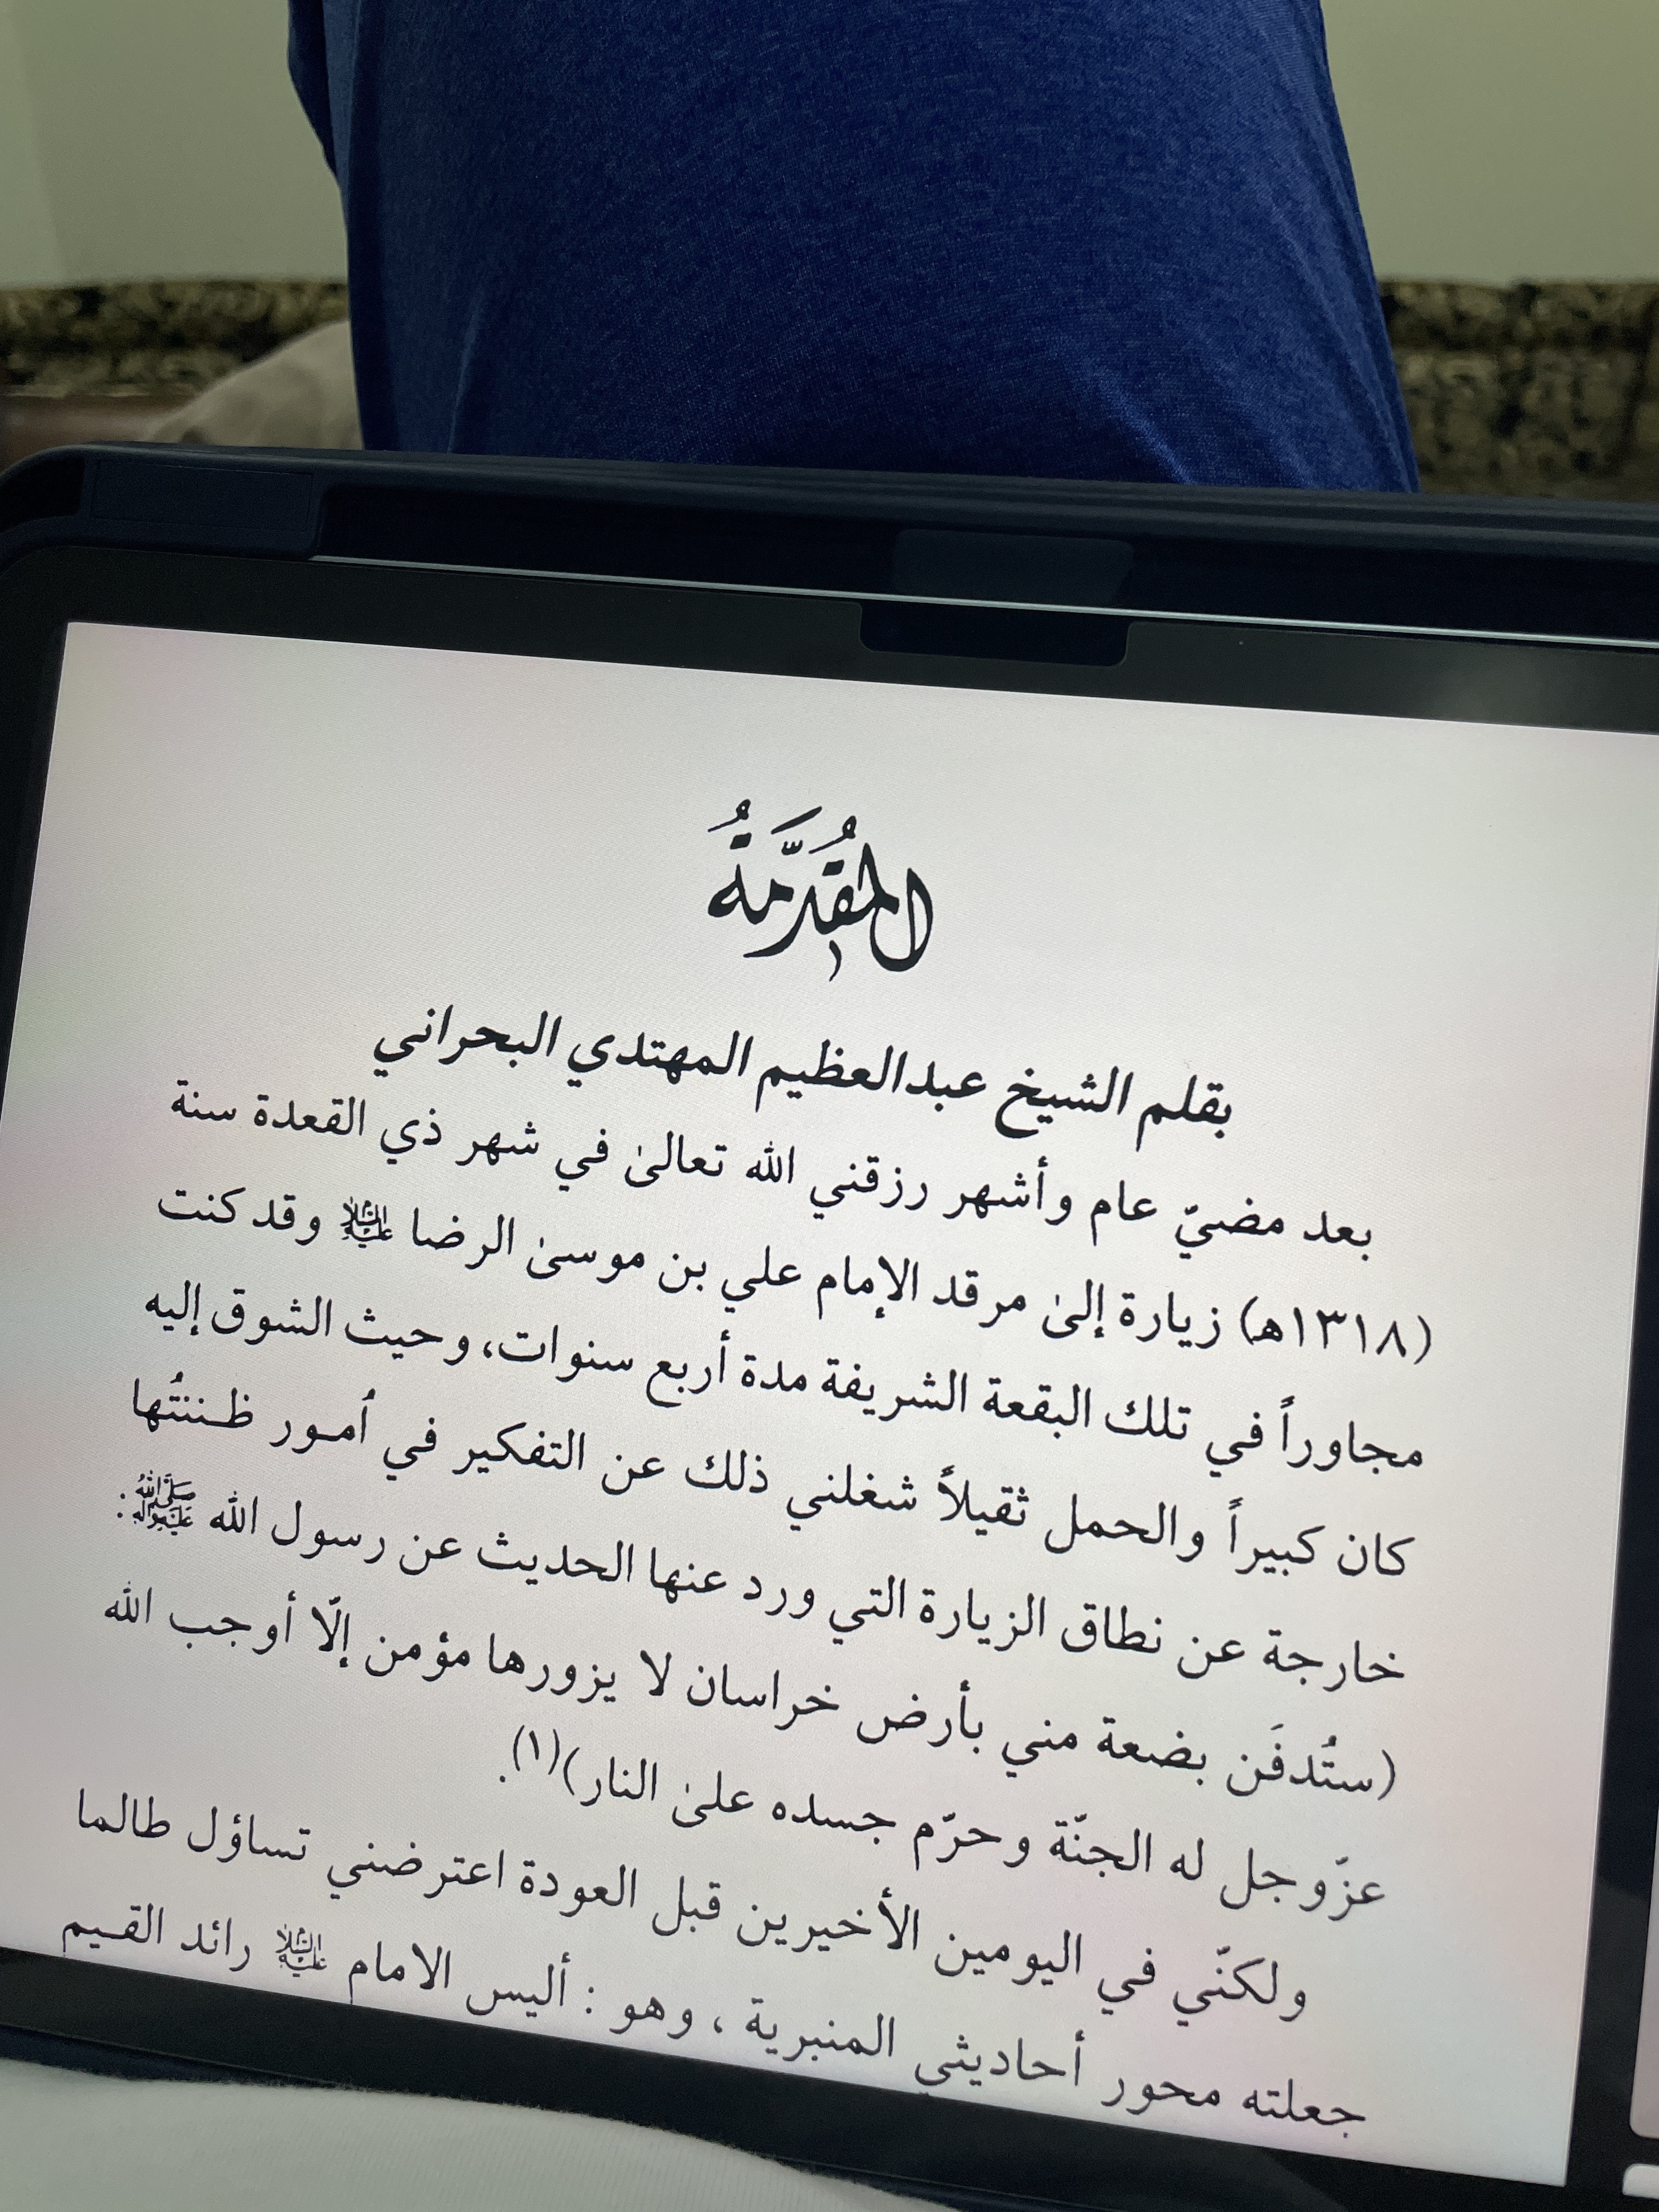 المُقدِّمَةُ
بقلم الشيخ عبدالعظيم المهتدي البحراني
بعد مضيّ عام وأشهر رزقني الله تعالىٰ في شهر ذي القعدة سنة
(١٣١٨هـ) زيارة إلىٰ مرقد الإمام علي بن موسىٰ الرضا عليه السلام وقد كنت
مجاوراً في تلك البقعة الشريفة مدة أربع سنوات، وحيث الشوق إليه
كان كبيراً والحمل ثقيلاً شغلني ذلك عن التفكير في أمـور ظـننتُها
خارجة عن نطاق الزيارة التي ورد عنها الحديث عن رسول الله ﷺ:
(ستُدفَن بضعة مني بأرض خراسان لا يزورها مؤمن إلّا أوجب الله
عزّوجل له الجنّة وحرّم جسده علىٰ النار)(١).
ولكنّي في اليومين الأخيرين قبل العودة اعترضني تساؤل طالما
جعلته محور أحاديثي المنبرية ، وهو : أليس الامام عليه السلام رائد القـيم